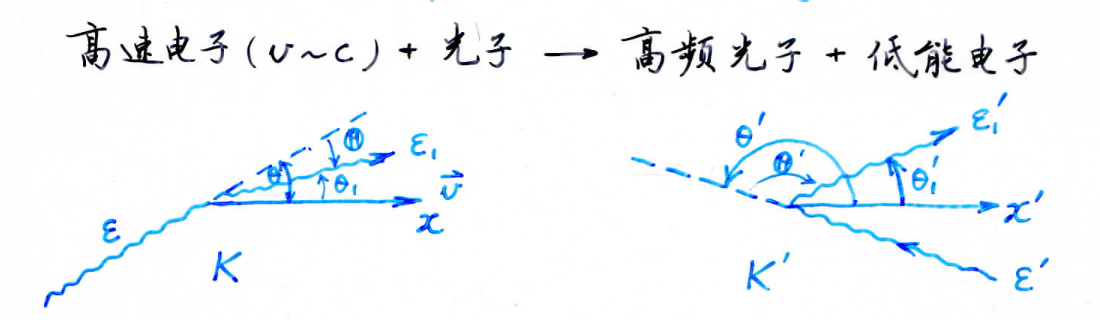 高速电子(υ~c) + 光子 → 高频光子 + 低能电子
Θ ε₁ θ θ₁ v⃗ x ε K
θ′ Θ′ ε₁′ θ₁′ x′ ε′ K′